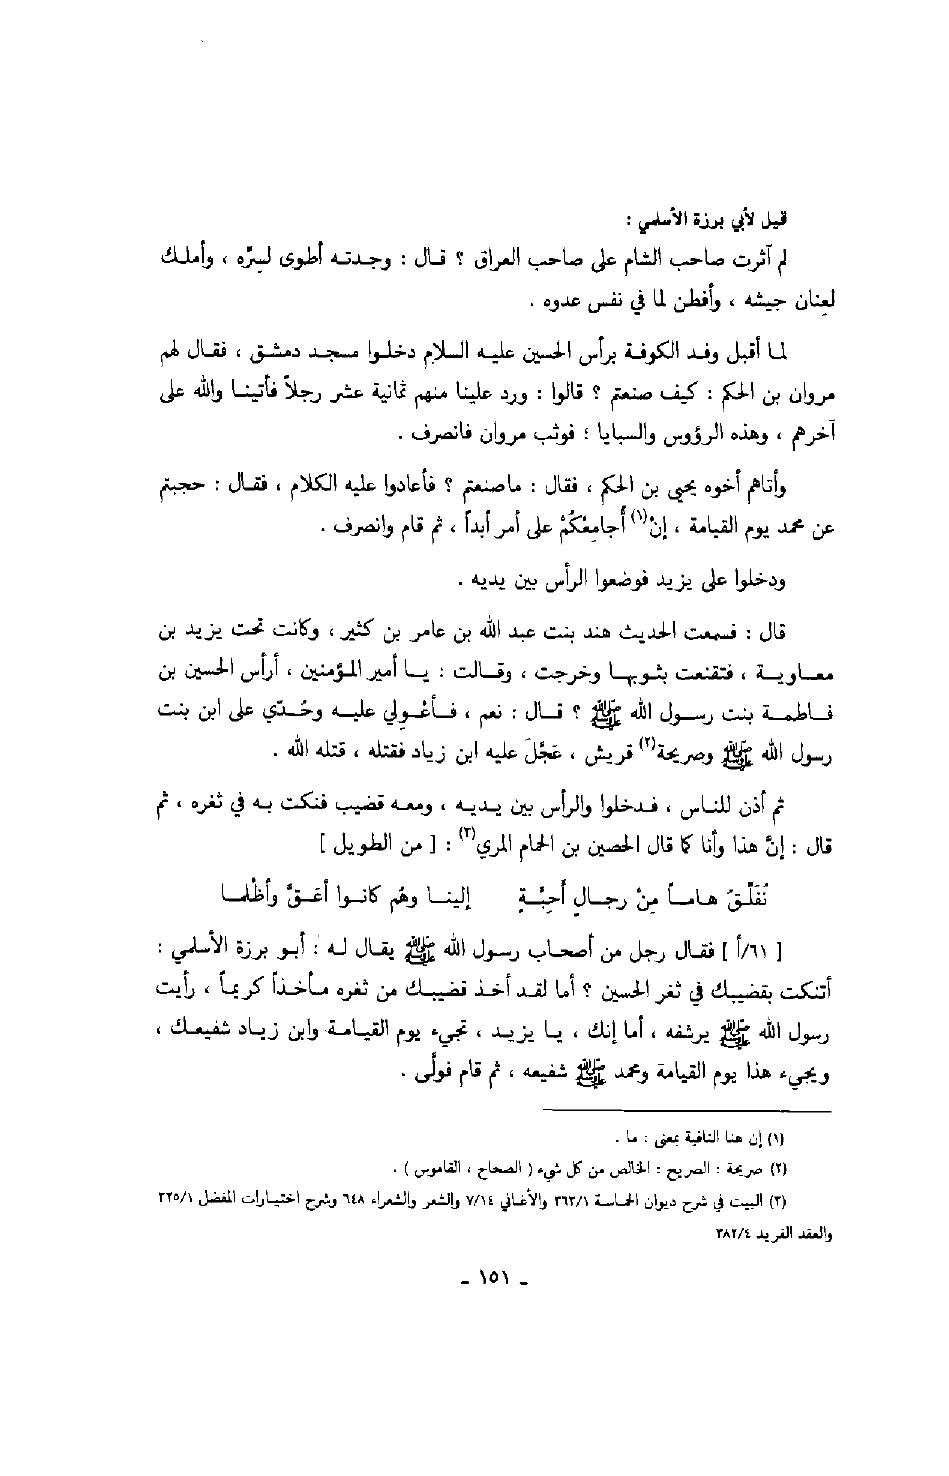 قيل لأبي برزة الأسلمي :
لم آثرت صاحب الشام على صاحب العراق ؟ قال : وجدته أطوى لسِرّه ، وأملك
لعِنان جيشه ، وأفطن لما في نفس عدوه .
لما أقبل وفد الكوفة برأس الحسين عليه السلام دخلوا مسجد دمشق ، فقال لهم
مروان بن الحكم : كيف صنعتم ؟ قالوا : ورد علينا منهم ثمانية عشر رجلاً فأتينا والله على
آخرهم ، وهذه الرؤوس والسبايا ؛ فوثب مروان فانصرف .
وأتاهم أخوه يحيى بن الحكم ، فقال : ماصنعتم ؟ فأعادوا عليه الكلام ، فقال : حجبتم
عن محمد يوم القيامة ، إنْ(١) أُجامِعُكُمْ على أمر أبداً ، ثم قام وانصرف .
ودخلوا على يزيد فوضعوا الرأس بين يديه .
قال : فسمعت الحديث هند بنت عبد الله بن عامر بن كثير ، وكانت تحت يزيد بن
معاوية ، فتقنعت بثوبها وخرجت ، وقالت : يا أمير المؤمنين ، أرأس الحسين بن
فاطمة بنت رسول الله ﷺ ؟ قال : نعم ، فأَعْولي عليه وحُدّي على ابن بنت
رسول الله ﷺ وصريحة(٢) قريش ، عَجَّلَ عليه ابن زياد فقتله ، قتله الله .
ثم أذن للناس ، فدخلوا والرأس بين يديه ، ومعه قضيب فنكت به في ثغره ، ثم
قال : إنَّ هذا وأنا كما قال الحصين بن الحمام المري(٣) : [ من الطويل ]
نُفَلّقُ هاماً مِنْ رجالٍ أَحِبَّةٍ إلينا وهُم كانوا أعَقَّ وأظْلما
[ ٦١/أ ] فقال رجل من أصحاب رسول الله ﷺ يقال له : أبو برزة الأسلمي :
أتنكت بقضيبك في ثغر الحسين ؟ أما لقد أخذ قضيبك من ثغره مأخذاً كريماً ، رأيت
رسول الله ﷺ يرشفه ، أما إنك ، يا يزيد ، تجيء يوم القيامة وابن زياد شفيعك ،
ويجيء هذا يوم القيامة ومحمد ﷺ شفيعه ، ثم قام فولَّى .
(١) إن هنا النافية بمعنى : ما .
(٢) صريحة : الصريح : الخالص من كل شيء ( الصحاح ، القاموس ) .
(٣) البيت في شرح ديوان الحماسة ٣٦٢/١ والأغاني ٧/١٤ والشعر والشعراء ٦٤٨ وشرح اختيارات المفضل ٣٢٥/١
والعقد الفريد ٣٨٢/٤
ـ ١٥١ ـ